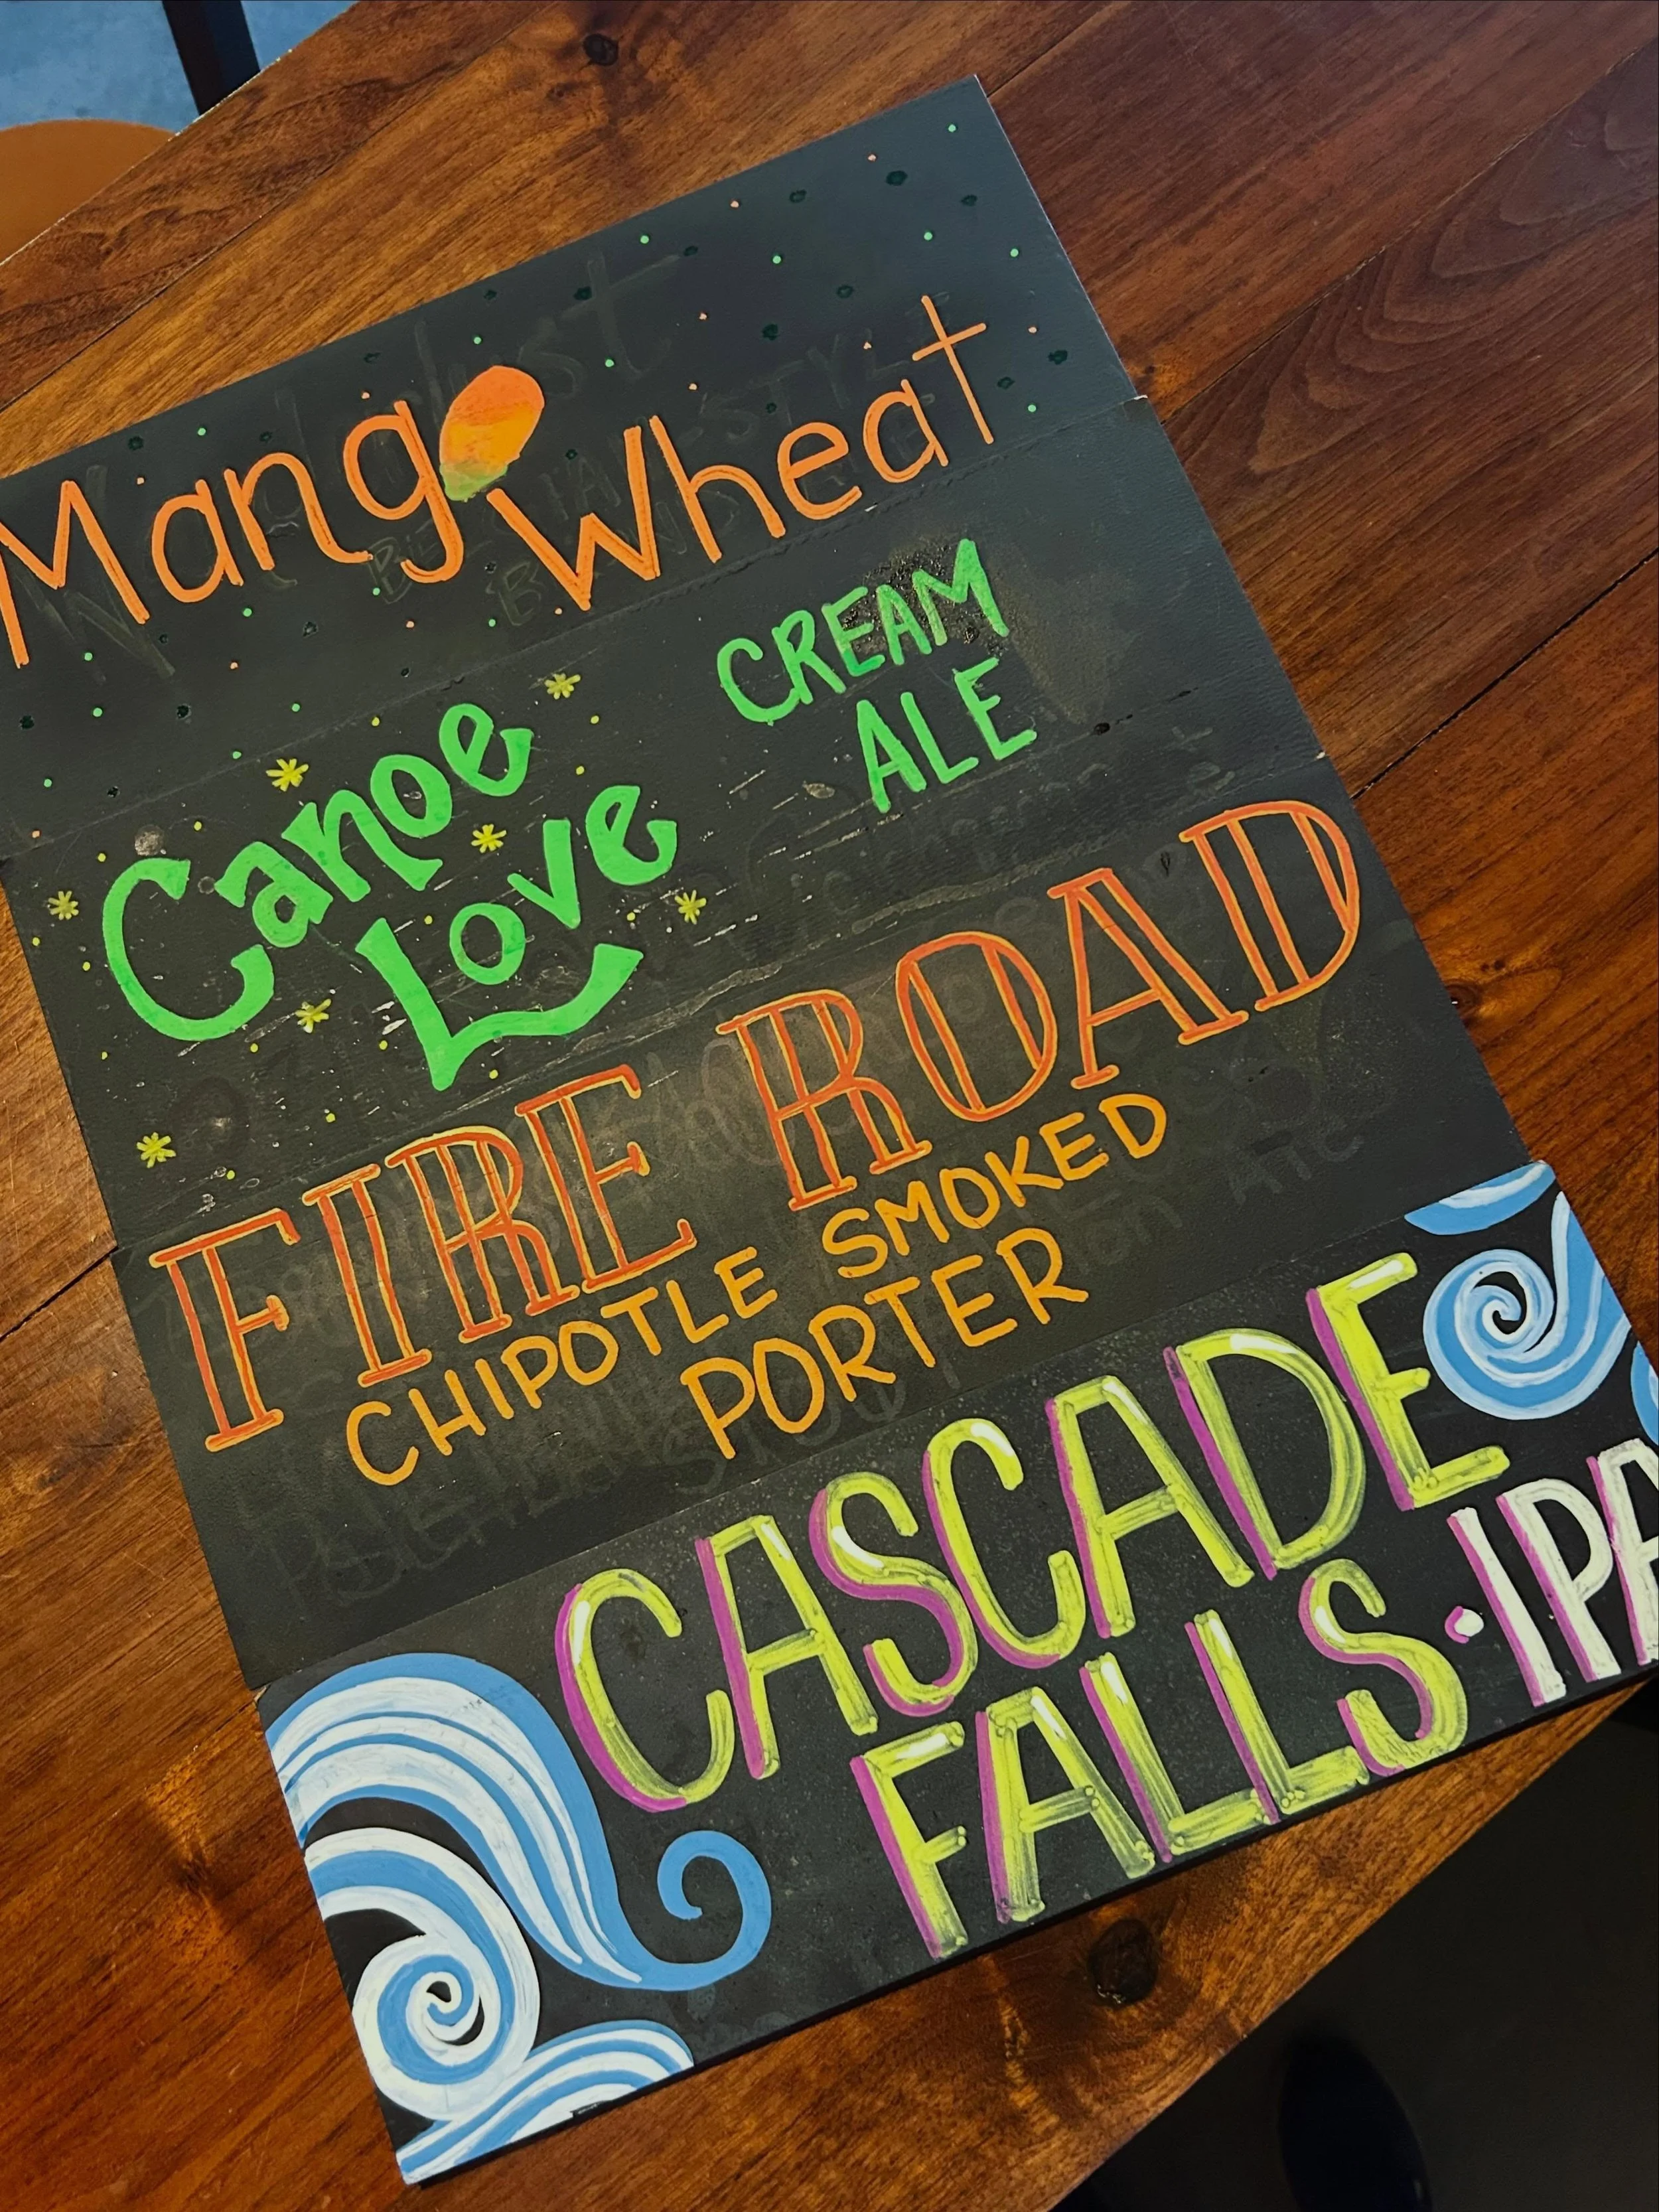 Mango Wheat
Canoe
Love
CREAM
ALE
FIRE ROAD
CHIPOTLE SMOKED
PORTER
CASCADE
FALLS • IPA